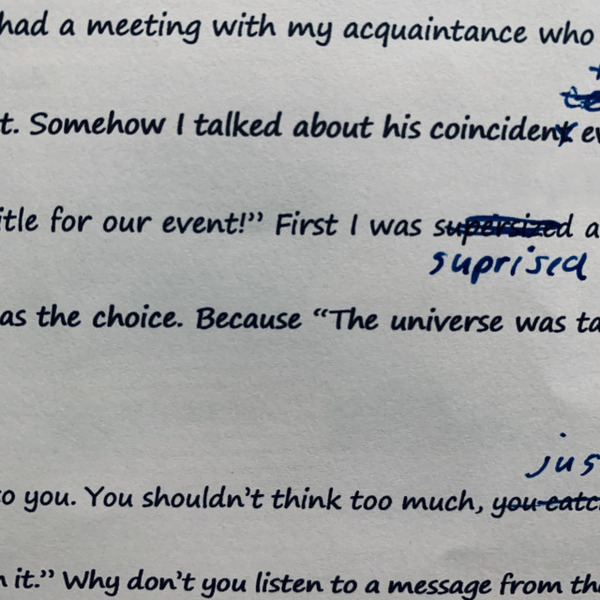 had a meeting with my acquaintance who
t. Somehow I talked about his coincident ev
itle for our event!” First I was supersized a
suprised
as the choice. Because “The universe was ta
jus
o you. You shouldn’t think too much, you catc
n it.” Why don’t you listen to a message from th